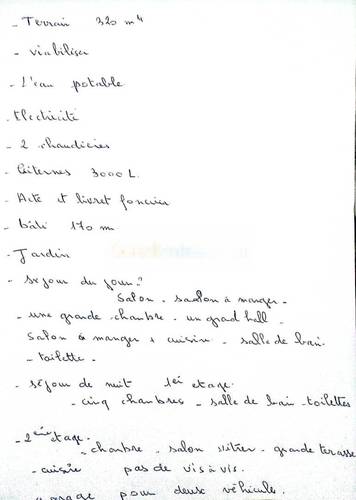 - Terrain 320 m⁴
- viabiliser
- L'eau potable
- Electricité
- 2 chaudières
- Citernes 3000 L.
- Acte et livret foncier
- bâti 170 m
- Jardin
- séjour du jour:
Salon - saalon à manger -
- une grande chambre - un grad hall -
Salon à manger + cuisine - salle de bain
- toilette -
- séjour de nuit 1er etage.
- cinq chambres - salle de bain - toilettes
- 2ème etage -
- chambre - salon - grande terasse
- cuisine pas de vis à vis.
pour deux véhicule.